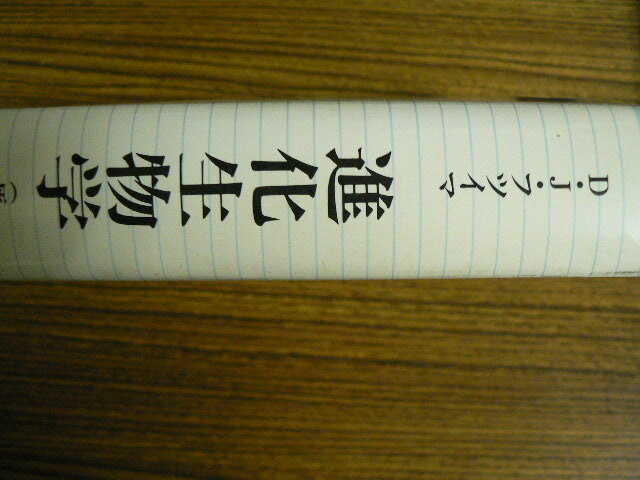 D・J・フツイマ
進化生物学